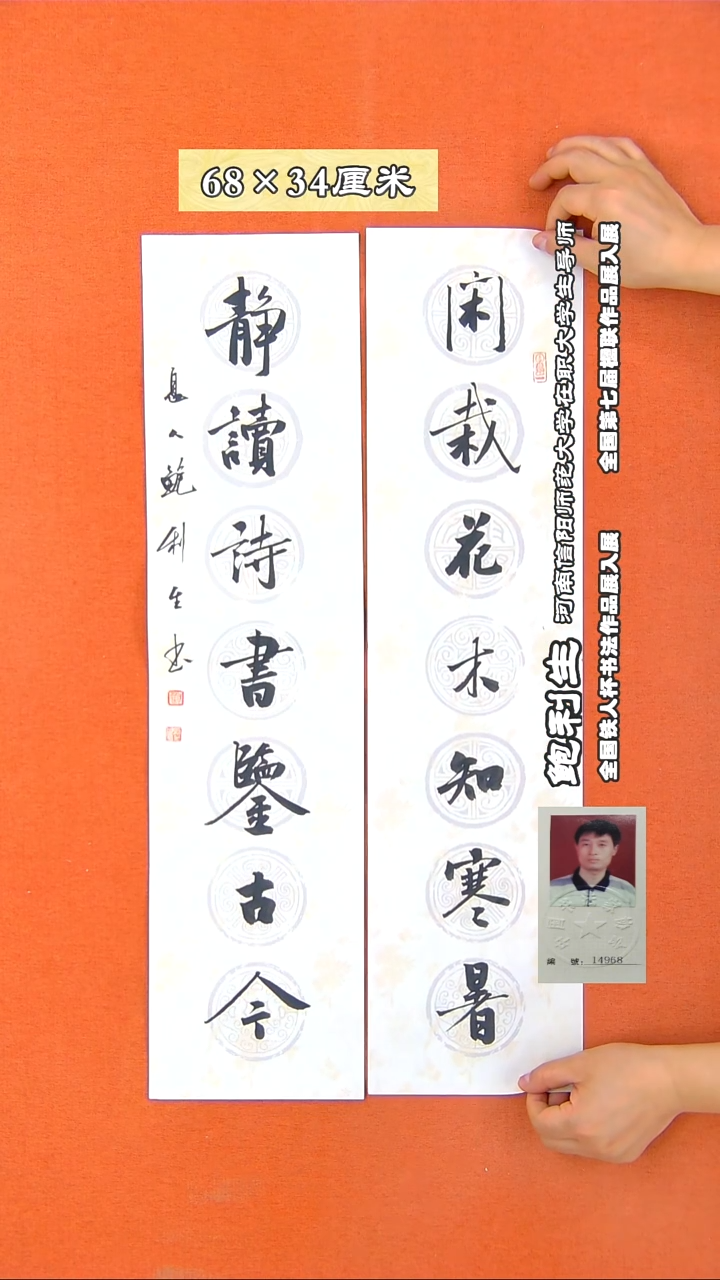 68×34厘米
闲栽花木知寒暑
静讀詩書鑒古今
息人鲍利生书
鲍利生 河南信阳师范大学在职大学生导师
全国铁人杯书法作品展入展 全国第七届楹联作品展入展
編號：14968